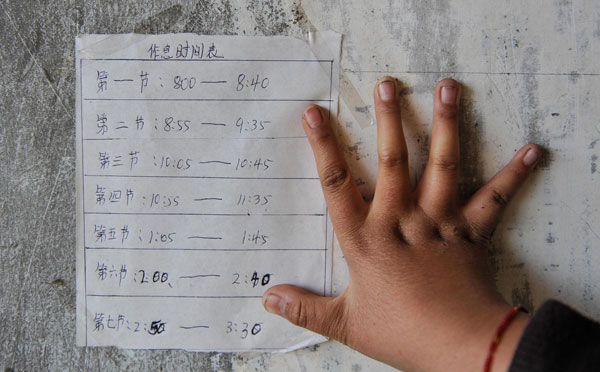 作息时间表
第一节：8:00 —— 8:40
第二节：8:55 —— 9:35
第三节：10:05 —— 10:45
第四节：10:55 —— 11:35
第五节：1:05 —— 1:45
第六节：2:00 —— 2:40
第七节：2:50 —— 3:30